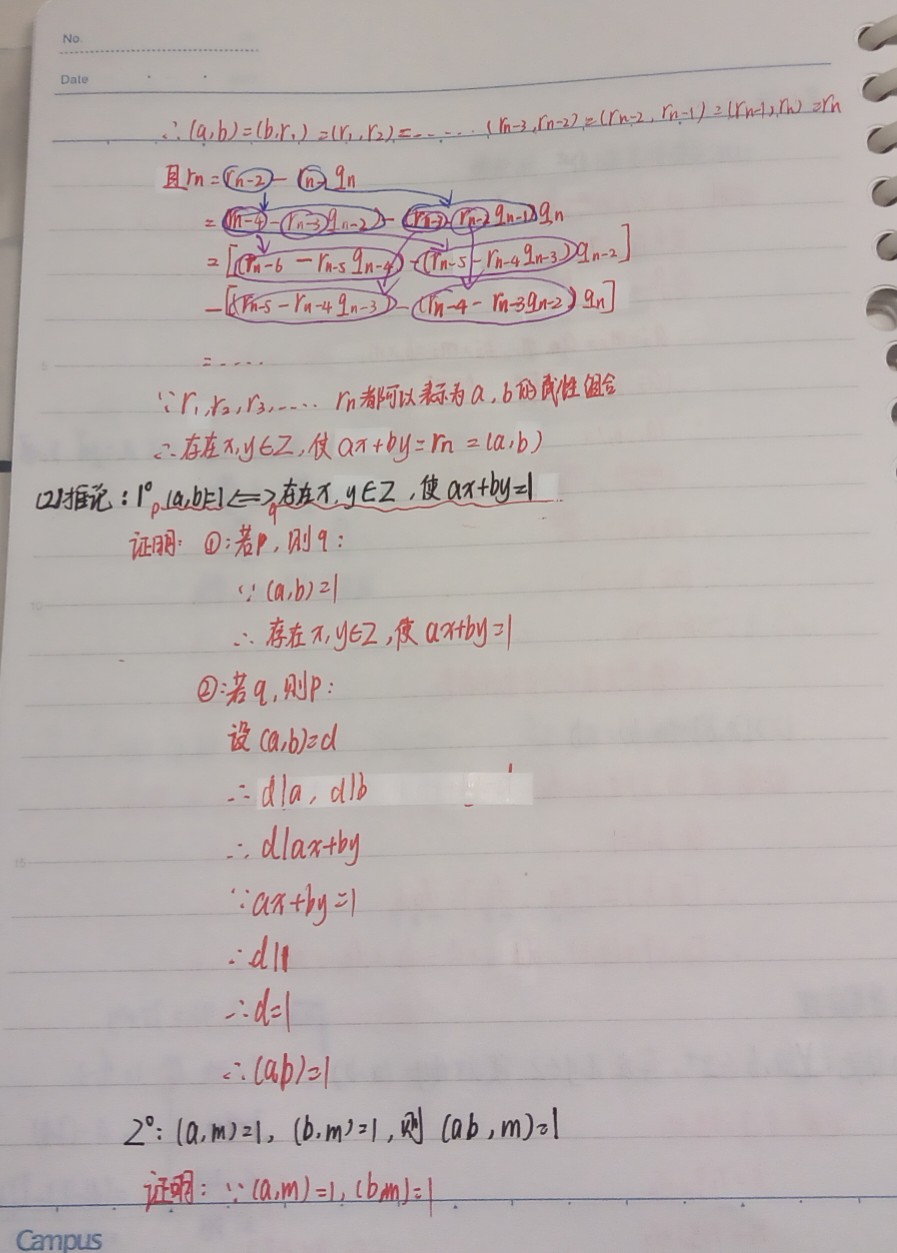 No.
Date
∴(a,b)=(b,r₁)=(r₁,r₂)=......(rn-3,rn-2)=(rn-2,rn-1)=(rn-1,rn)=rn
且rn=rn-2-rn-1qn
=(rn-4-rn-3qn-2)-(rn-3-rn-2qn-1)qn
=[(rn-6-rn-5qn-4)-(rn-5-rn-4qn-3)qn-2]
-[(rn-5-rn-4qn-3)-(rn-4-rn-3qn-2)qn]
=....
∵r₁,r₂,r₃,.... rn都可以表示为a,b的线性组合
∴存在x,y∈Z,使ax+by=rn=(a,b)
(2)推论:1° p(a,b)=1⟺q存在x,y∈Z,使ax+by=1
证明: ①:若p,则q:
∵(a,b)=1
∴存在x,y∈Z,使ax+by=1
②:若q,则p:
设(a,b)=d
∴d|a, d|b
∴d|ax+by
∵ax+by=1
∴d|1
∴d=1
∴(a,b)=1
2°:(a,m)=1, (b,m)=1,则(ab,m)=1
证明:∵(a,m)=1,(b,m)=1
Campus